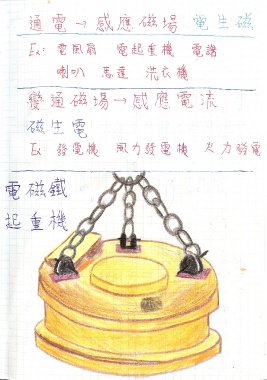 通電→感應磁場 電生磁
Ex: 電風扇 電起重機 電譜
喇叭 馬達 洗衣機
變通磁場→感應電流
磁生電
Ex 發電機 風力發電機 火力發電
電磁鐵
起重機